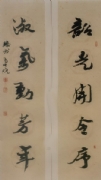 韶光開令序
淑氣動芳年